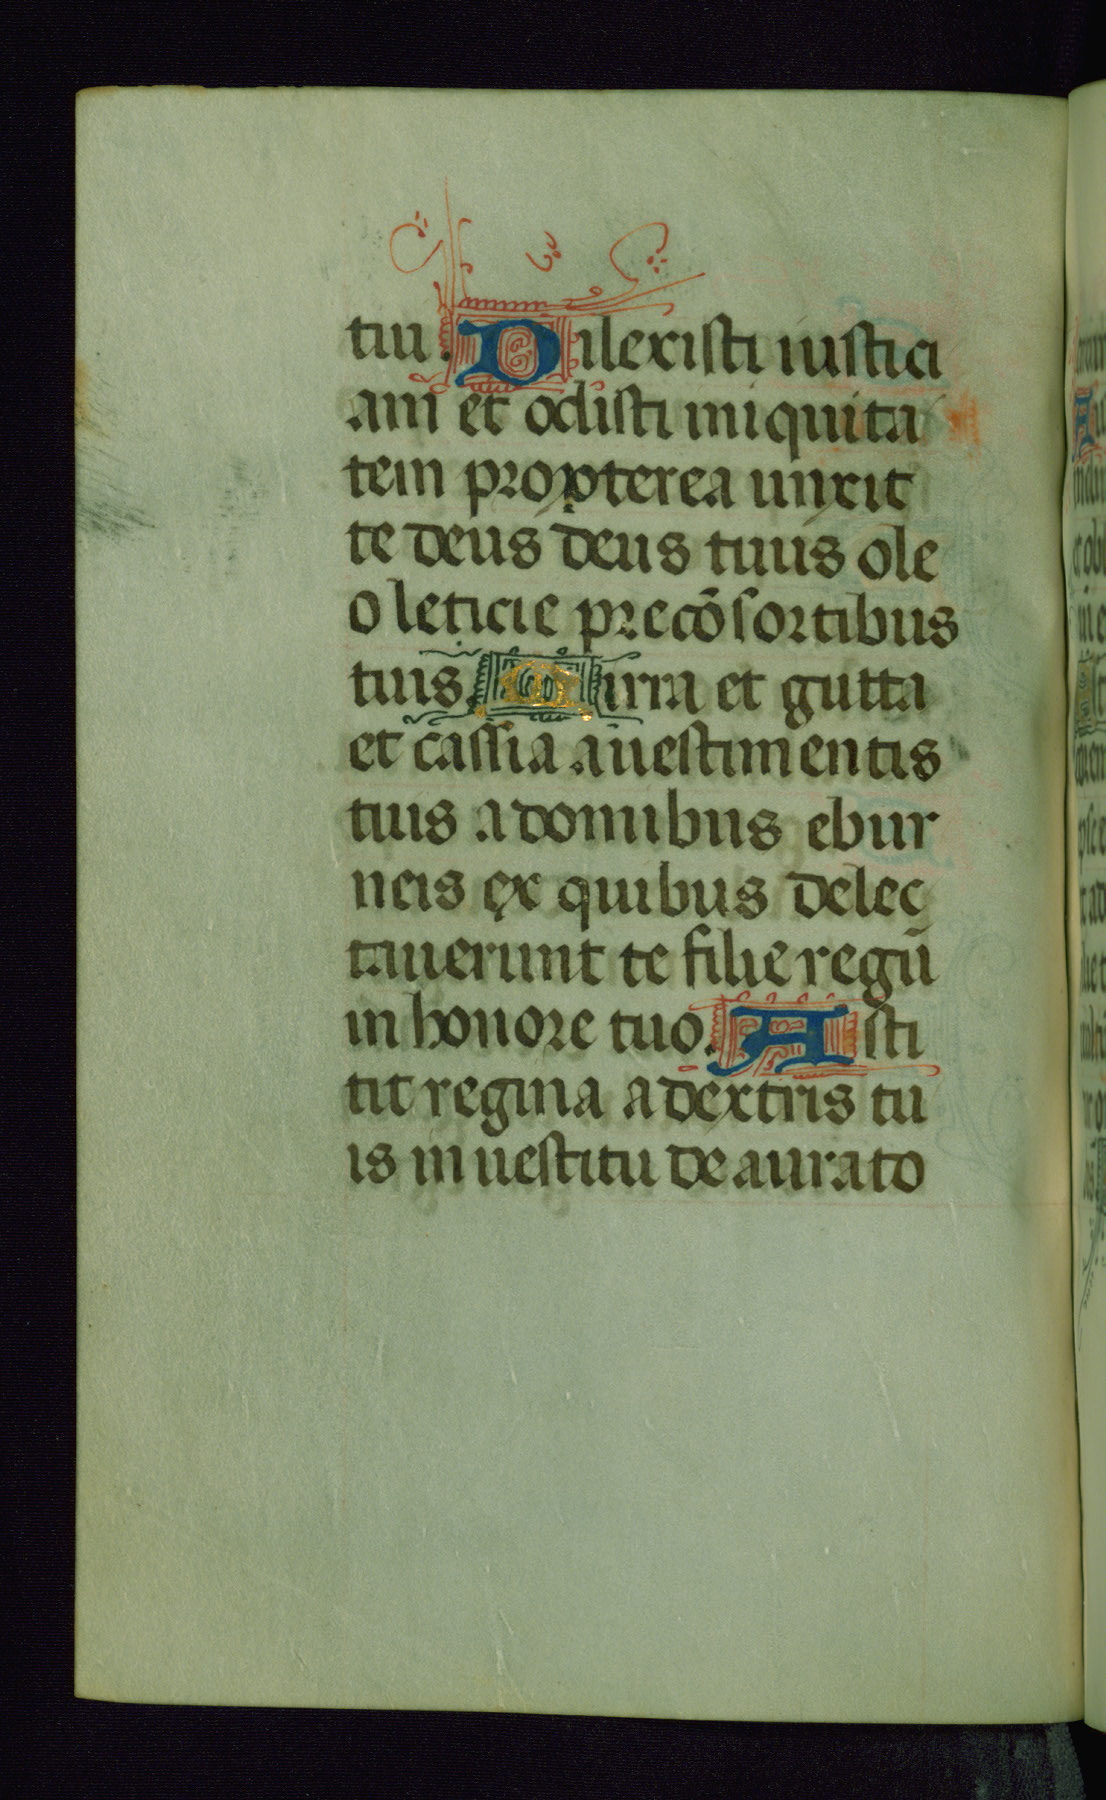 tui. Dilexisti iustici
am et odisti iniquita
tem propterea unxit
te deus deus tuus ole
o leticie precõsortibus
tuis. Mirra et gutta
et cassia a uestimentis
tuis a domibus ebur
neis ex quibus delec
tauerunt te filie regũ
in honore tuo. Asti
tit regina a dextris tu
is in uestitu deaurato